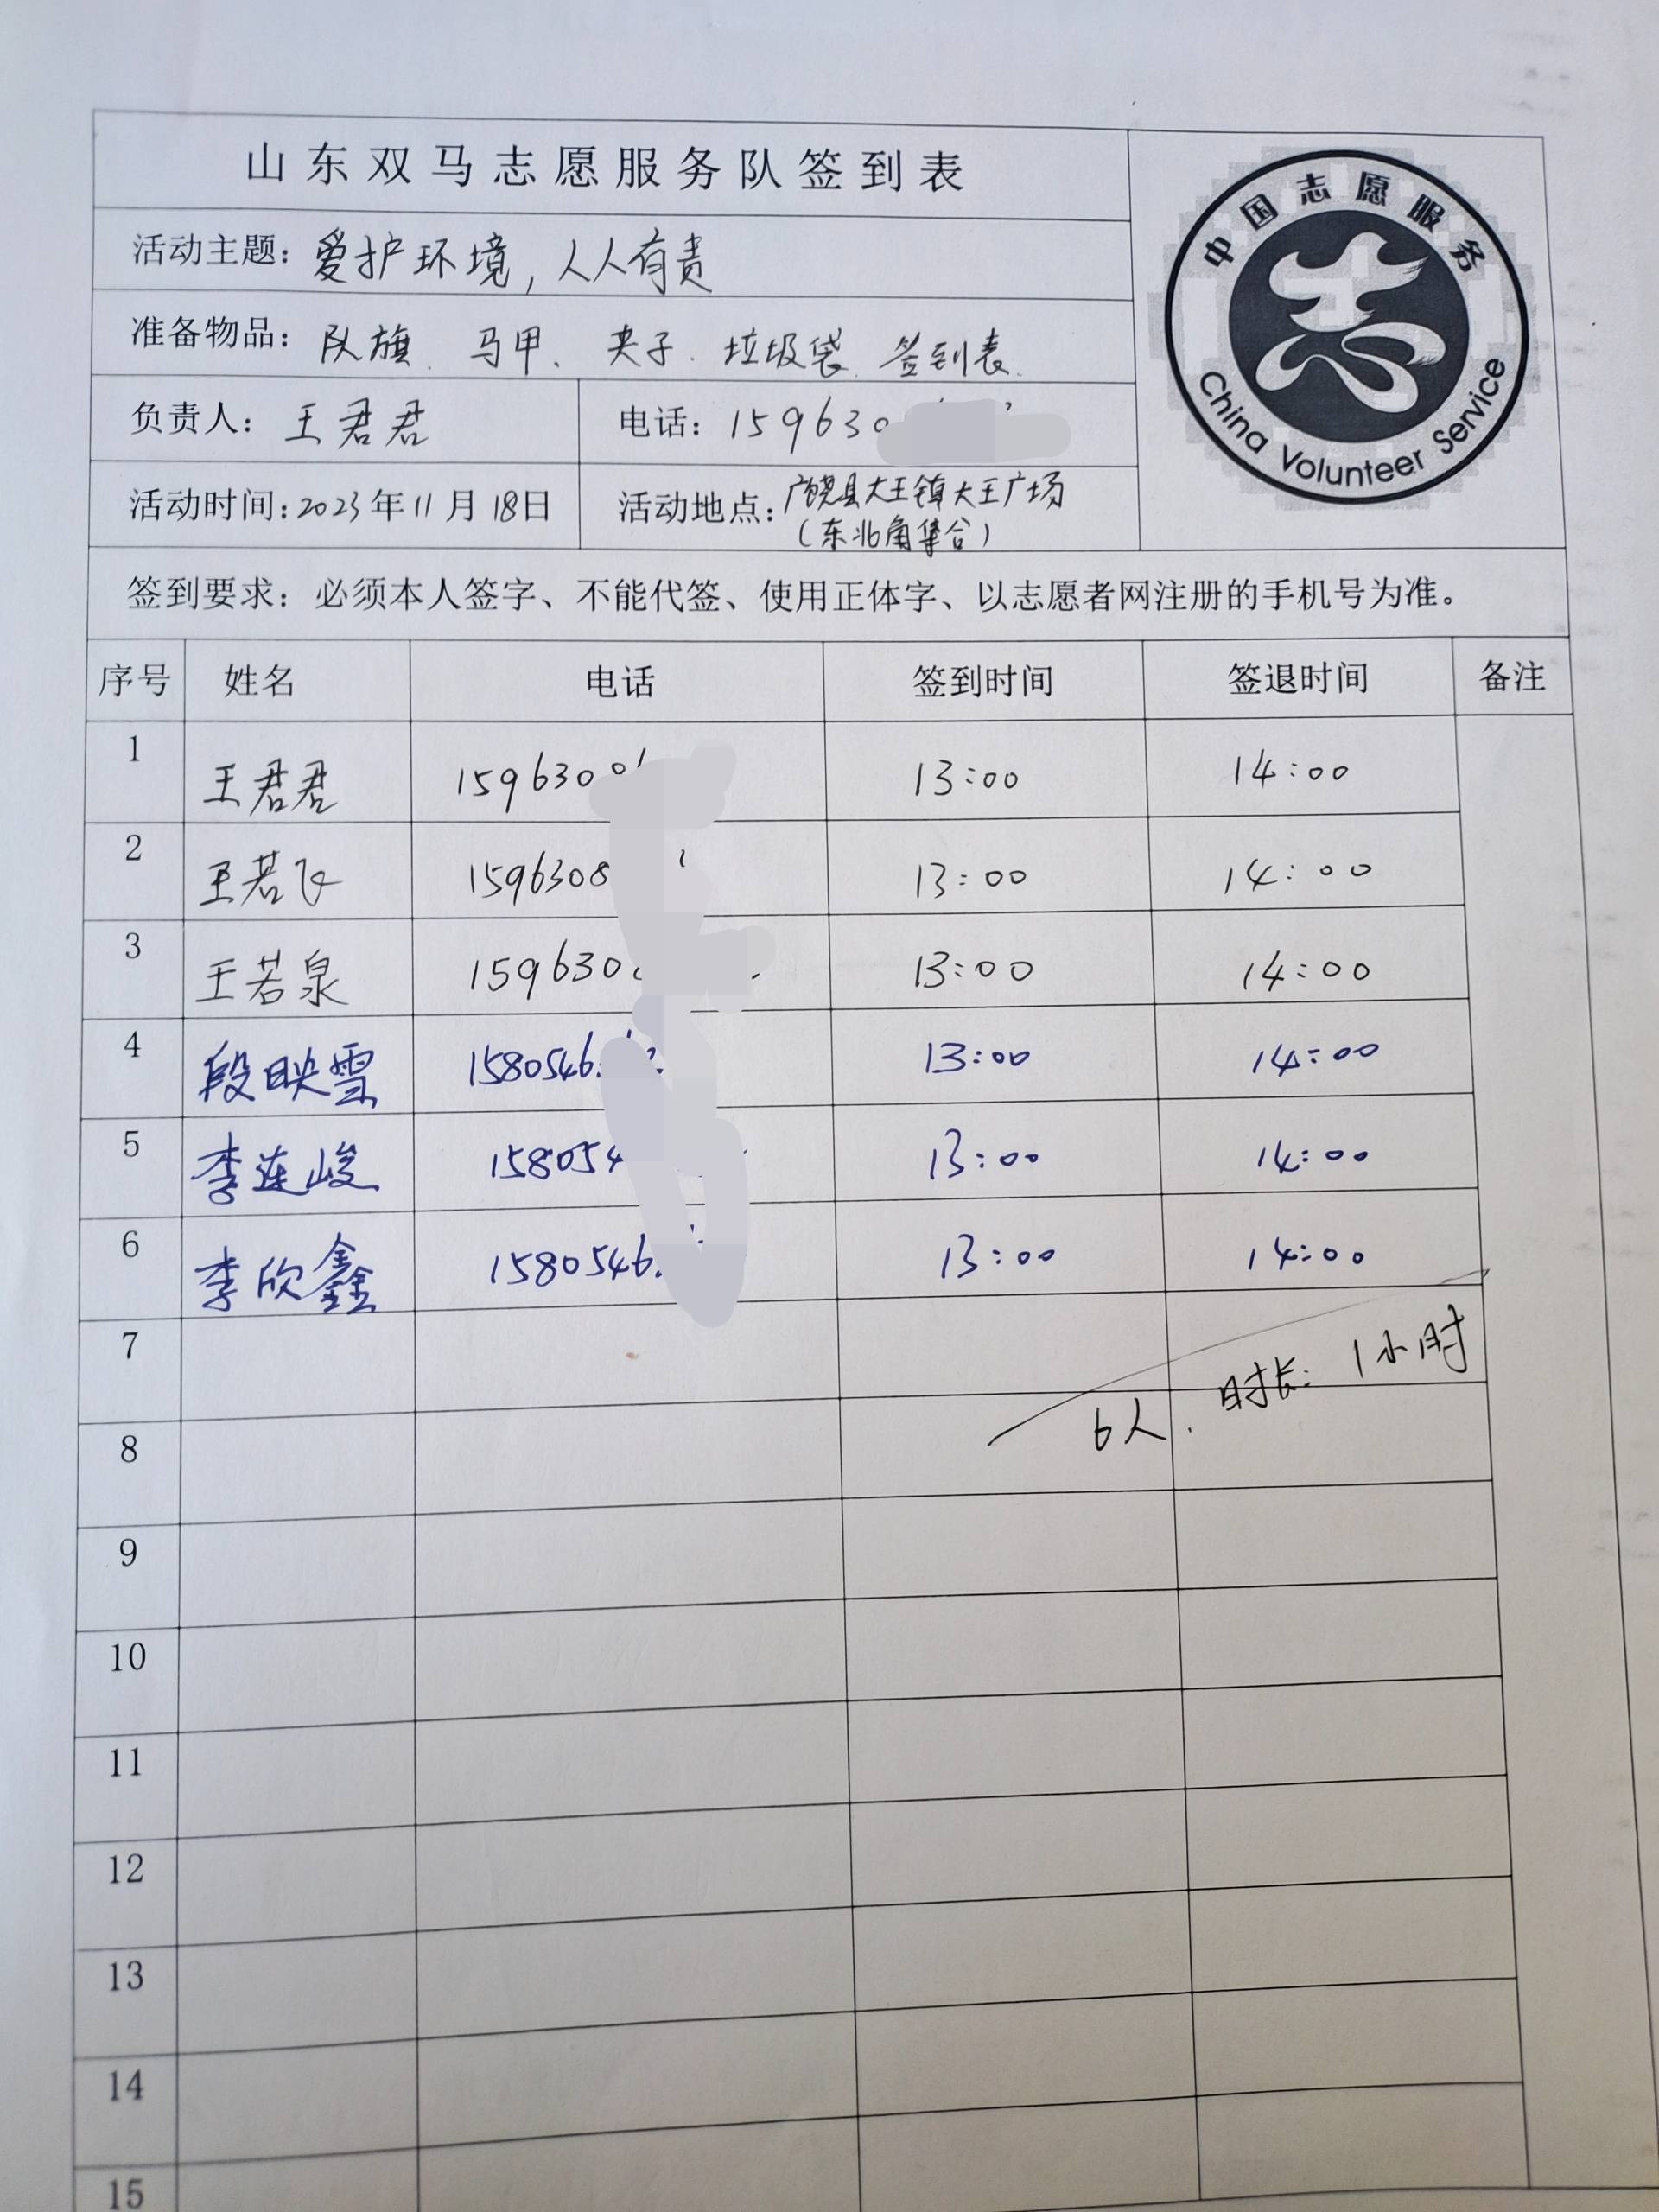 山东双马志愿服务队签到表
中国志愿服务
China Volunteer Service
活动主题：爱护环境，人人有责
准备物品：队旗、马甲、夹子、垃圾袋、签到表
负责人：王君君 电话：159630
活动时间：2023年11月18日 活动地点：广饶县大王镇大王广场
（东北角集合）
签到要求：必须本人签字、不能代签、使用正体字、以志愿者网注册的手机号为准。
序号 姓名 电话 签到时间 签退时间 备注
1 王君君 1596300 13:00 14:00
2 王若飞 1596308 13:00 14:00
3 王若泉 159630 13:00 14:00
4 段映雪 1580546 13:00 14:00
5 李连峻 158054 13:00 14:00
6 李欣鑫 1580546 13:00 14:00
7
6人. 时长: 1小时
8
9
10
11
12
13
14
15